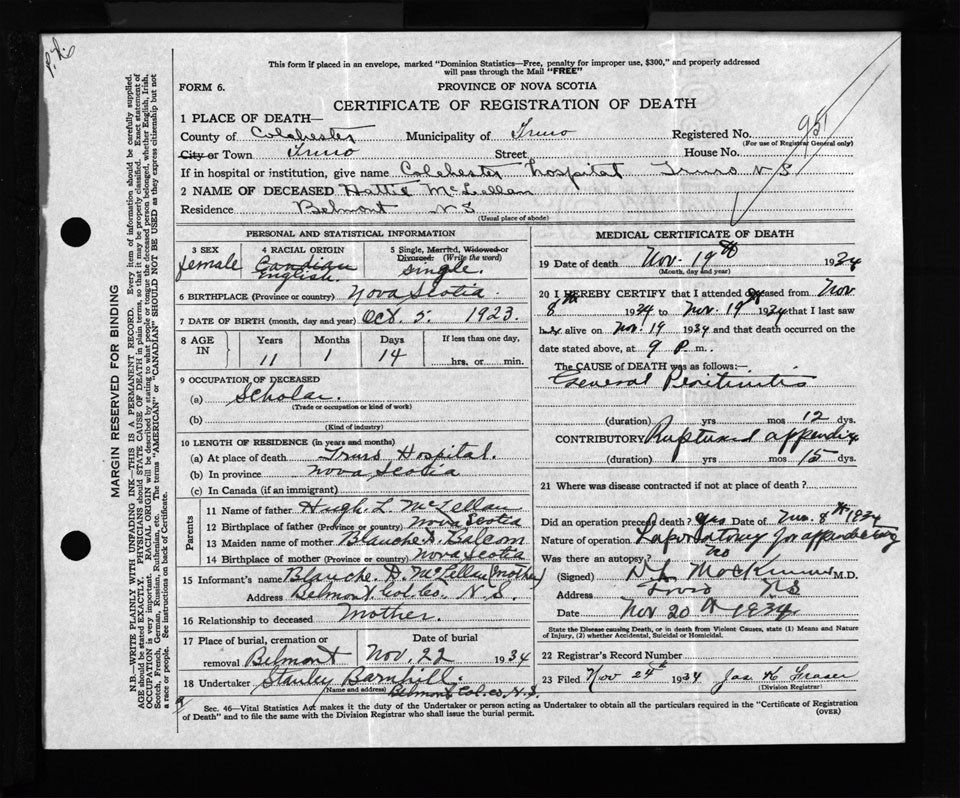 P.h.
This form if placed in an envelope, marked "Dominion Statistics—Free, penalty for improper use, $300," and properly addressed
will pass through the Mail "FREE"
FORM 6.
PROVINCE OF NOVA SCOTIA
CERTIFICATE OF REGISTRATION OF DEATH
951
1 PLACE OF DEATH—
County of Colchester Municipality of Truro Registered No.
(For use of Registrar General only)
City or Town Truro Street House No.
If in hospital or institution, give name Colchester Hospital Truro N S
2 NAME OF DECEASED Hattie McLellan
Residence Belmont NS
(Usual place of abode)
PERSONAL AND STATISTICAL INFORMATION
3 SEX
female
4 RACIAL ORIGIN
Canadian
English.
5 Single, Married, Widowed or
Divorced. (Write the word)
single.
6 BIRTHPLACE (Province or country) Nova Scotia.
7 DATE OF BIRTH (month, day and year) Oct. 5. 1923.
8 AGE
IN
Years Months Days If less than one day,
11 1 14 hrs. or min.
9 OCCUPATION OF DECEASED
(a) Scholar.
(Trade or occupation or kind of work)
(b)
(Kind of industry)
10 LENGTH OF RESIDENCE (in years and months)
(a) At place of death Truro Hospital.
(b) In province Nova Scotia
(c) In Canada (if an immigrant)
Parents
11 Name of father Hugh L. McLellan
12 Birthplace of father (Province or country) Nova Scotia
13 Maiden name of mother Blanche A. Balcom
14 Birthplace of mother (Province or country) Nova Scotia
15 Informant's name Blanche. A. McLellan (mother)
Address Belmont, Col. Co. N.S.
16 Relationship to deceased Mother.
17 Place of burial, cremation or
removal Belmont
Date of burial
Nov. 22 1934
18 Undertaker Stanley Barnhill.
(Name and address) Belmont Col. co. N.S.
MEDICAL CERTIFICATE OF DEATH
19 Date of death Nov. 19th 1934
(Month, day and year)
20 I HEREBY CERTIFY that I attended deceased from Nov
8th 1934 to Nov. 19th 1934 that I last saw
her alive on Nov. 19 1934 and that death occurred on the
date stated above, at 9 P. m.
The CAUSE of DEATH was as follows:—
General Peritinitis
(duration) yrs mos 12 dys.
CONTRIBUTORY Ruptured appendix
(duration) yrs mos 15 dys.
21 Where was disease contracted if not at place of death?
Did an operation precede death? yes Date of Nov. 8th 1934
Nature of operation Laporotomy for
Was there an autopsy? no
(Signed) M.D.
Address Truro NS
Date Nov 20th 1934.
State the Disease causing Death, or in death from Violent Causes, state (1) Means and Nature
of Injury, (2) whether Accidental, Suicidal or Homicidal.
22 Registrar's Record Number
23 Filed Nov 24th 1934 Jas K Fraser
(Division Registrar)
Sec. 46—Vital Statistics Act makes it the duty of the Undertaker or person acting as Undertaker to obtain all the particulars required in the "Certificate of Registration
of Death" and to file the same with the Division Registrar who shall issue the burial permit.
(OVER)
MARGIN RESERVED FOR BINDING
N.B.—WRITE PLAINLY WITH UNFADING INK.—THIS IS A PERMANENT RECORD. Every item of information should be carefully supplied.
AGE should be stated EXACTLY. PHYSICIANS should STATE CAUSE OF DEATH in plain terms, so that it may be properly classified. Exact statement of
OCCUPATION is very important. RACIAL ORIGIN will be described by stating to what people or tongue the deceased person belonged, whether English, Irish,
Scotch, French, German, Russian, Ruthenian, etc. The terms "AMERICAN" or "CANADIAN" SHOULD NOT BE USED as they express citizenship but not
a race or people. See instructions on back of Certificate.